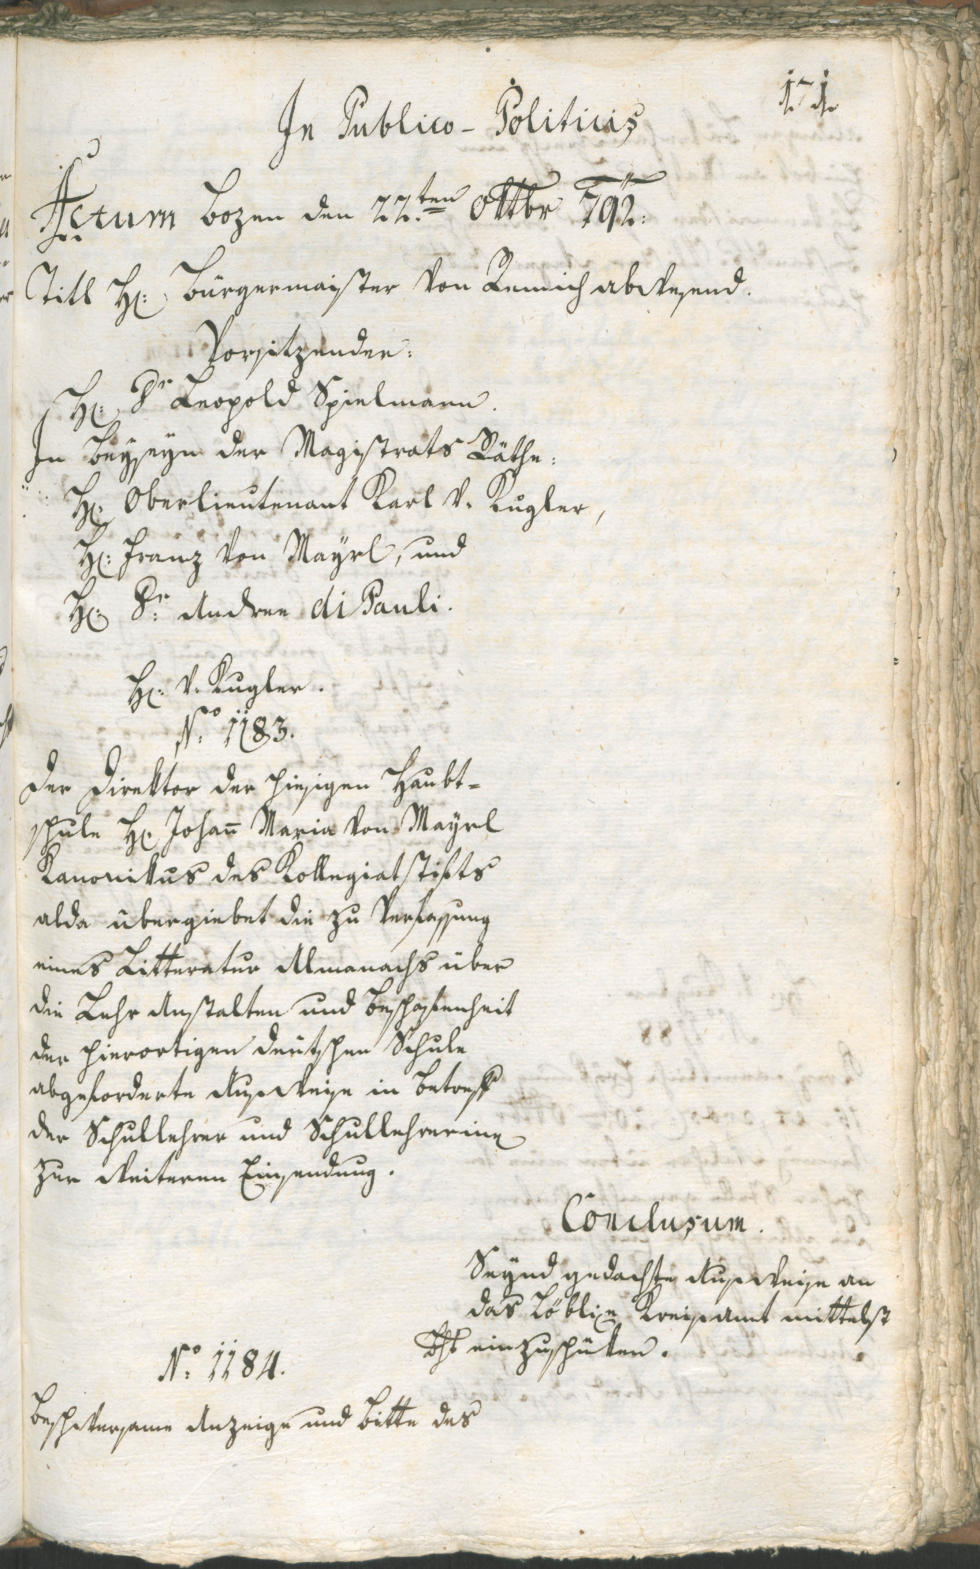 171.
In Publico-Politicis
Actum Bozen den 22.ten 8ttbr 792.
Titl H: Bürgermaister von Remich abwesend.
Vorsitzender:
H: Dr Leopold Spielmann.
In Beyseyn der Magistrats Räthe:
H: Oberlieutenant Karl v. Kugler,
H: Franz von Mayrl, und
H: Dr: Andree di Pauli.
H: v. Kugler.
No: 1183.
Der Direktor der hiesigen Haubt-
schule H: Johan̄ Maria von Mayrl
Kanonikus des Kollegiatstifts
alda übergiebet die zu Verfassung
eines Litteratur Almanachs über
die Lehr Anstalten und Beschafenheit
der hierortigen deütschen Schule
abgeforderte Ausweise in Betreff
der Schullehrer und Schullehrerinen
zur weiteren Einsendung.
Conclusum.
Seynd gedachte Ausweise an
das Löbliche Kreisamt mittelst
Bht einzuschüken.
No: 1184.
Beschwersame Anzeige und Bitte des